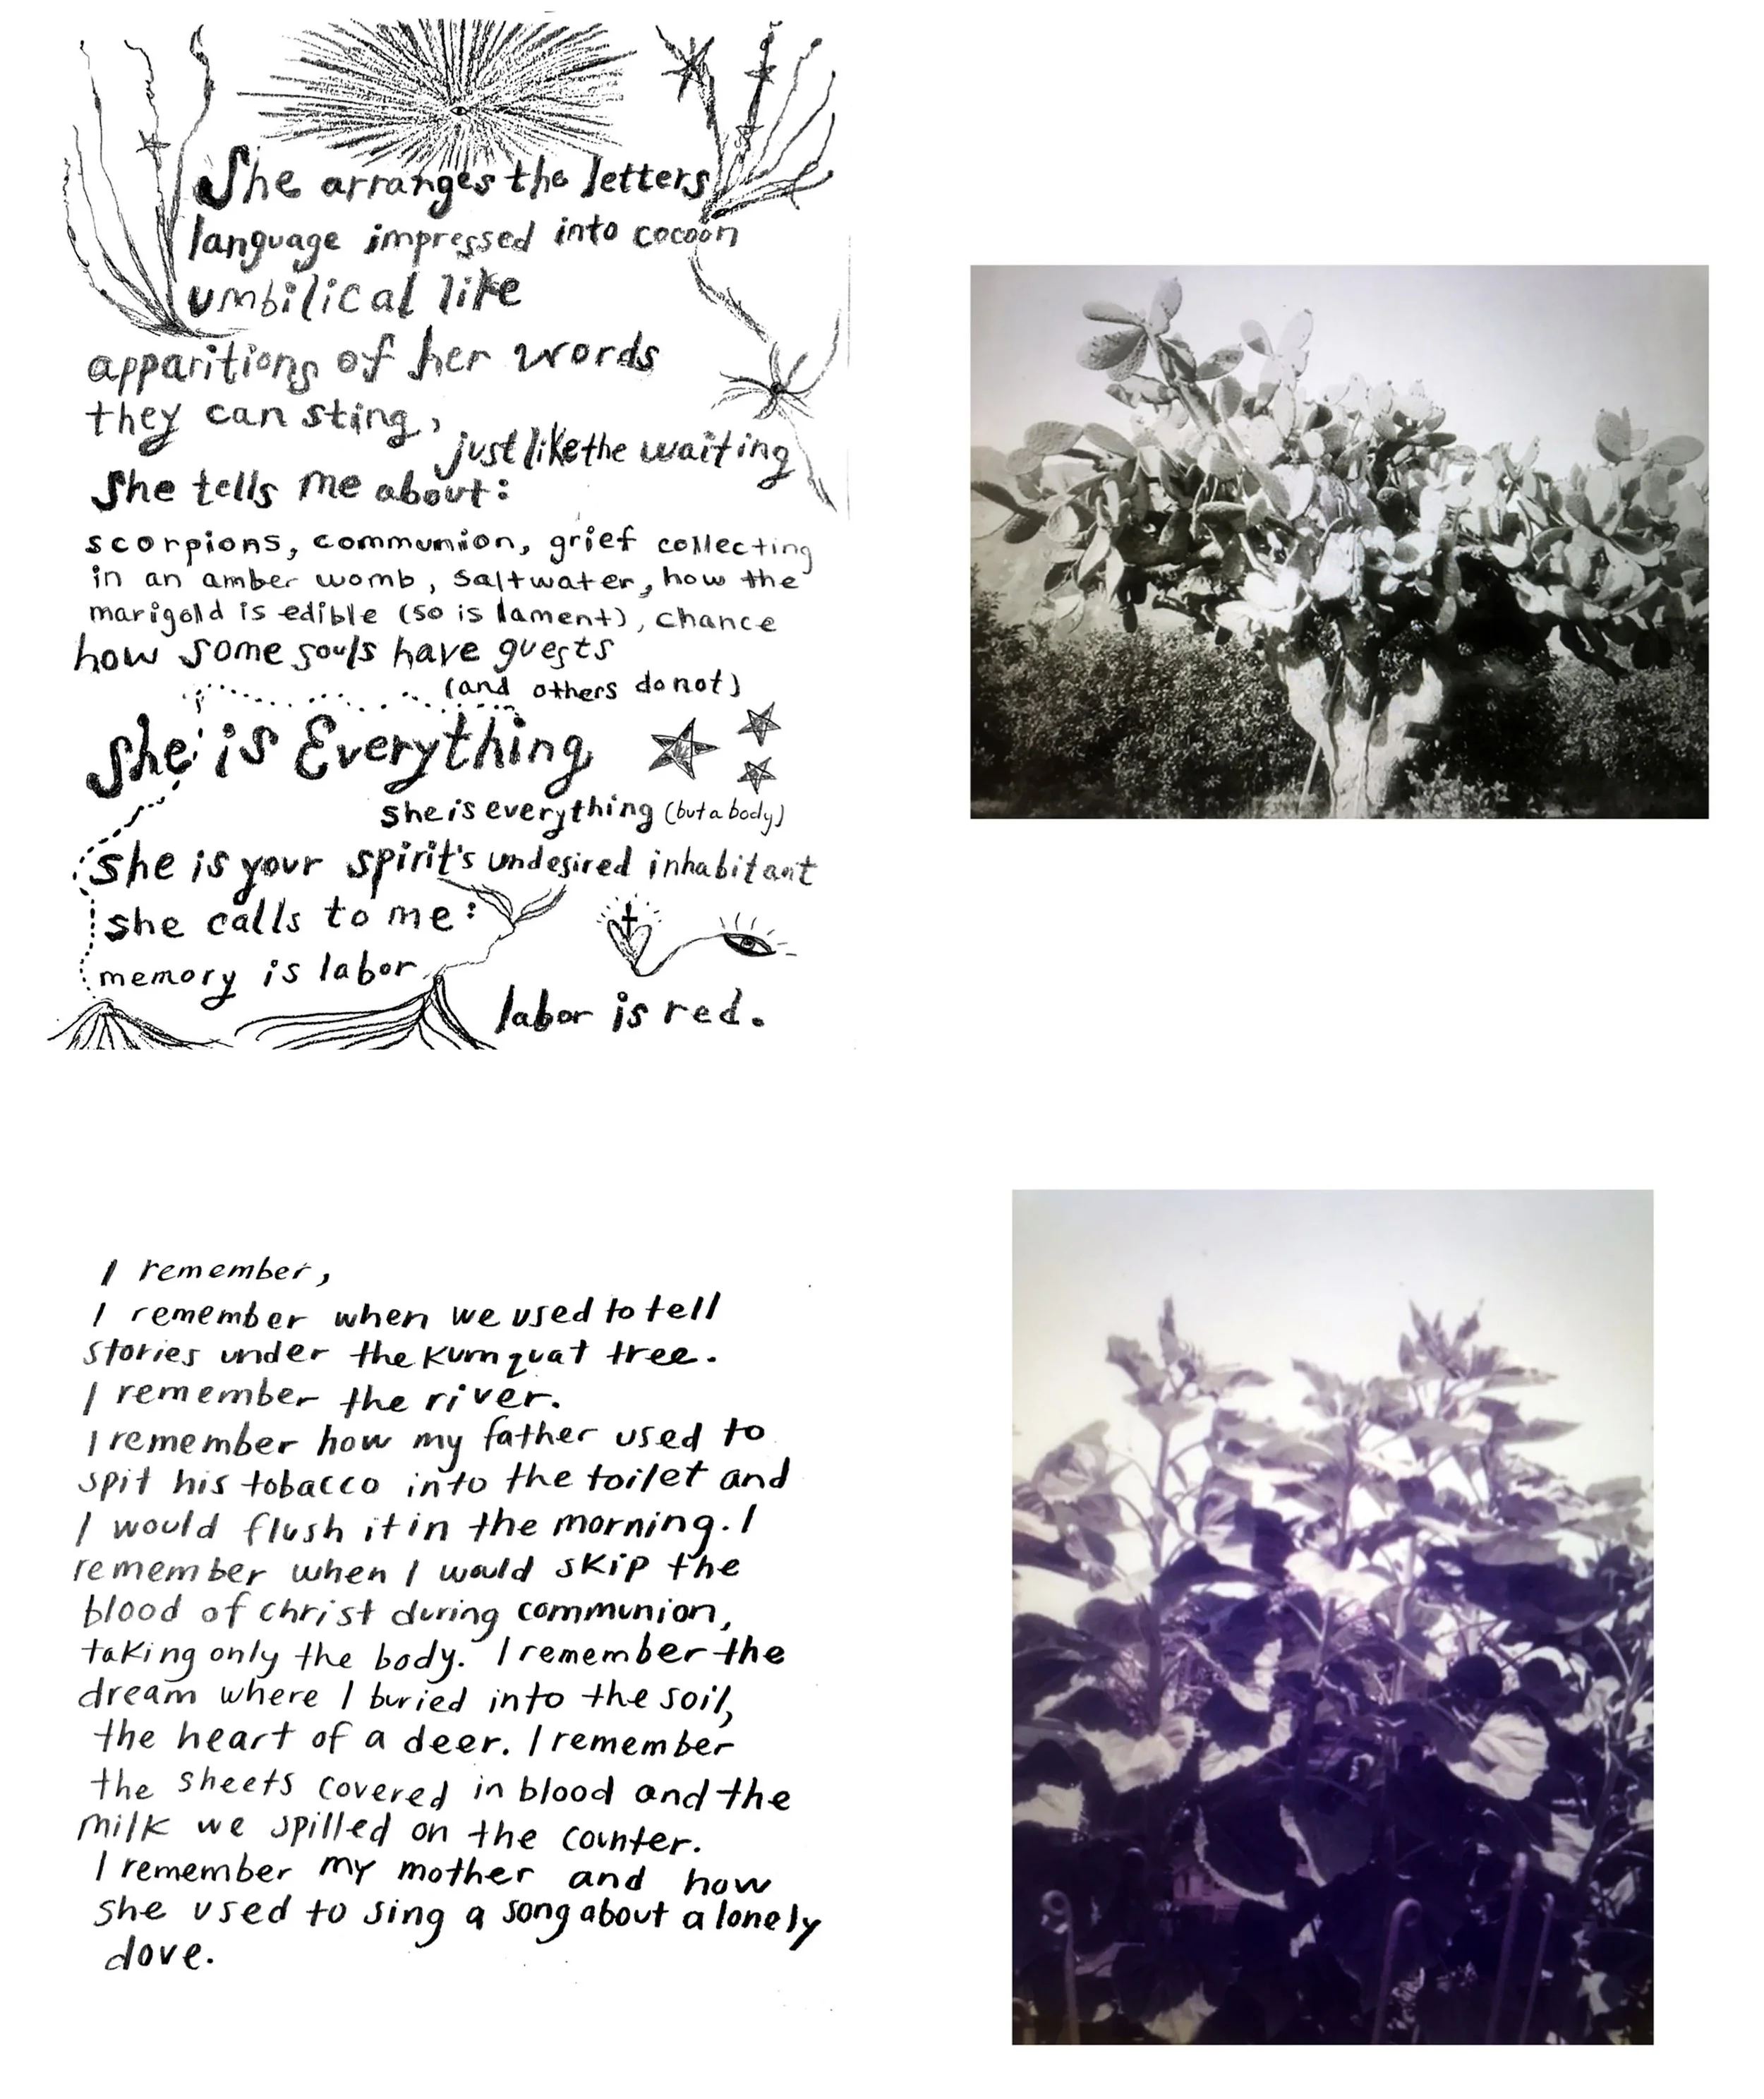 She arranges the letters
language impressed into cocoon
umbilical like
apparitions of her words
they can sting,
just like the waiting
She tells me about:
scorpions, communion, grief collecting
in an amber womb, saltwater, how the
marigold is edible (so is lament), chance
how some souls have guests
(and others do not)
She is Everything
she is everything (but a body)
she is your spirit's undesired inhabitant
she calls to me:
memory is labor
labor is red.
I remember,
I remember when we used to tell
stories under the kumquat tree.
I remember the river.
I remember how my father used to
spit his tobacco into the toilet and
I would flush it in the morning. I
remember when I would skip the
blood of christ during communion,
taking only the body. I remember the
dream where I buried into the soil,
the heart of a deer. I remember
the sheets covered in blood and the
milk we spilled on the counter.
I remember my mother and how
she used to sing a song about a lonely
dove.